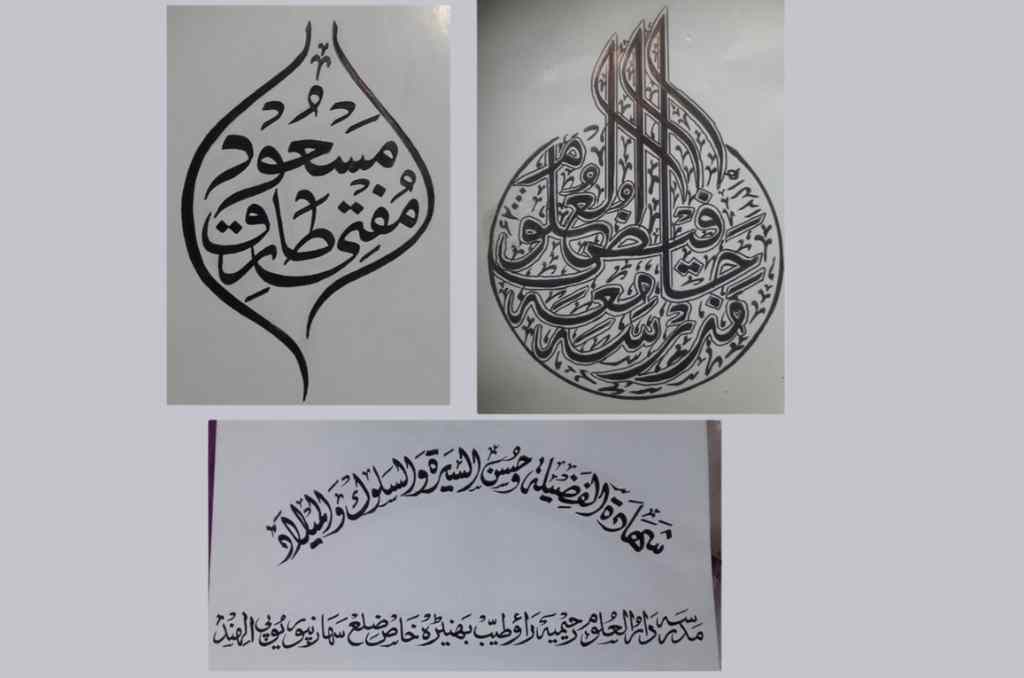 مسعود
مفتی طارق
مدرسه جامعه فیاض العلوم
شهادة الفضيلة وحسن السيرة والسلوك والميلاد
مدرسه دارالعلوم رحیمیه راؤ طیب بهنیڑه خاص ضلع سهارنپور یوپی الهند